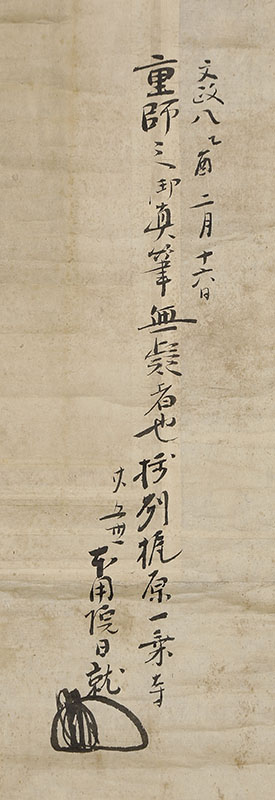 文政八乙酉二月十六日
重師之御真筆無疑者也摂列梶原一乗寺
廿五世
本用院日就